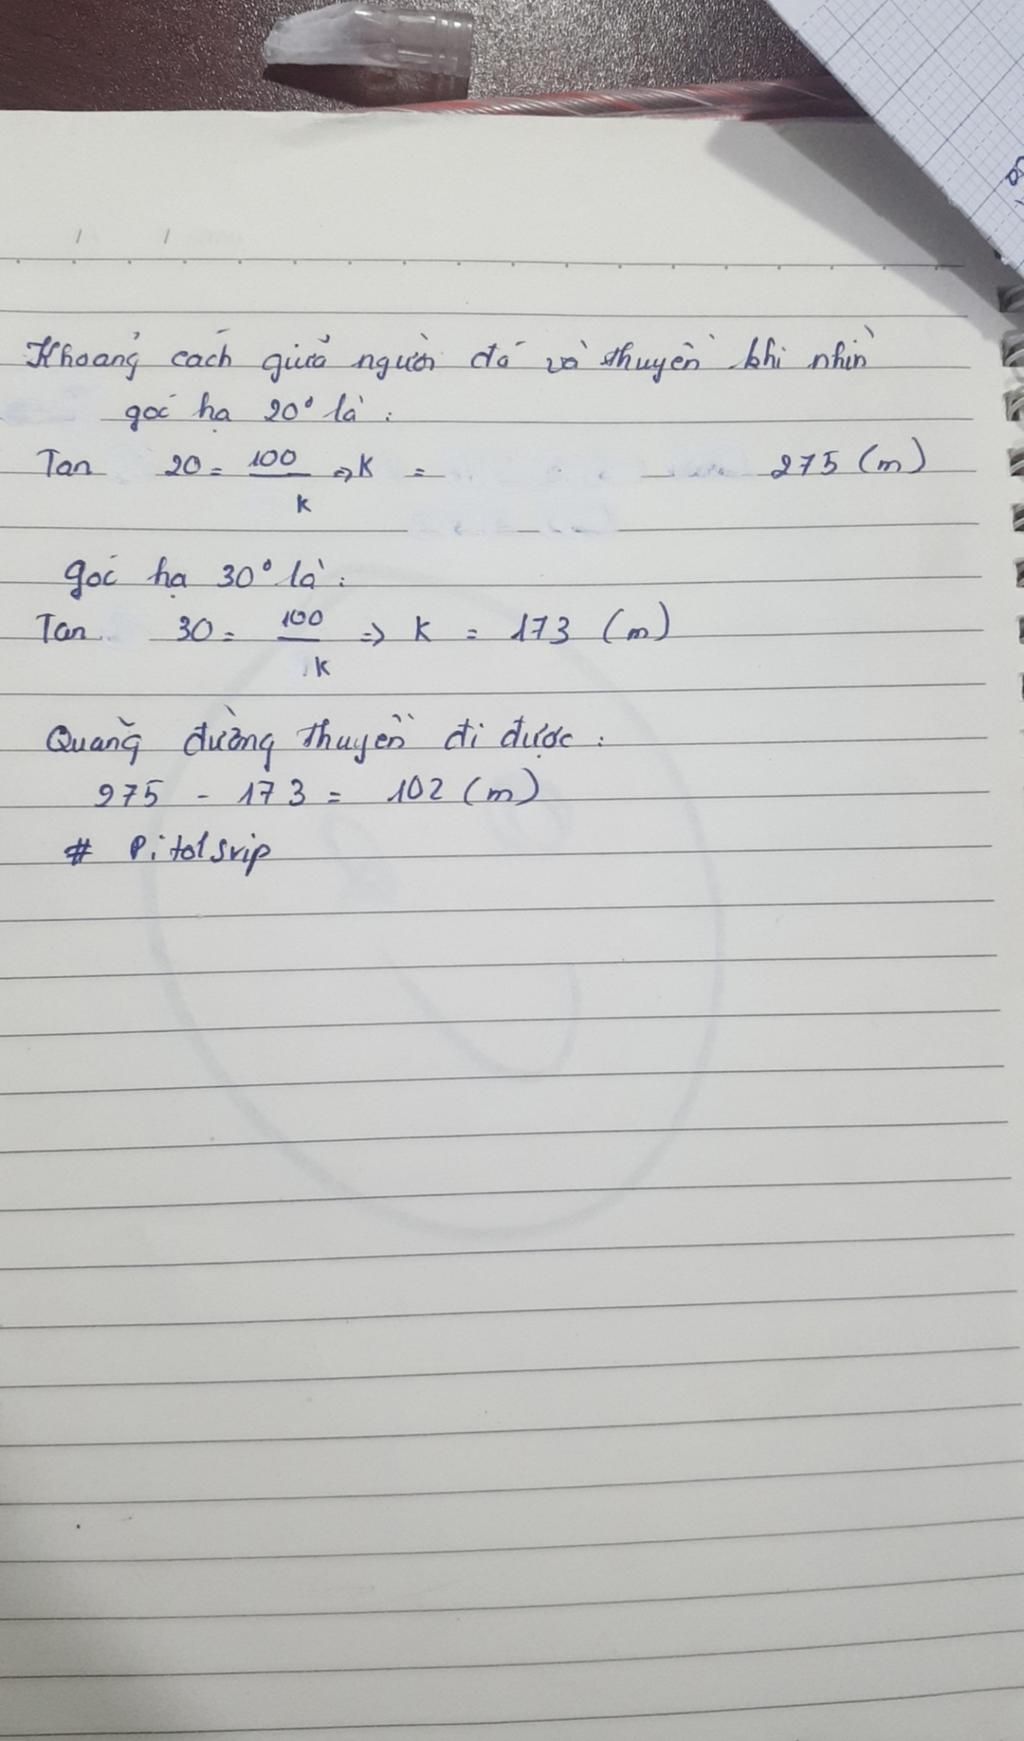 Khoảng cách giữa người đó và thuyền khi nhìn
góc hạ 20° là:
Tan 20 = 100/k => k = 275 (m)
góc hạ 30° là:
Tan 30 = 100/k => k = 173 (m)
Quãng đường thuyền đi được:
275 - 173 = 102 (m)
# Pitolsrip